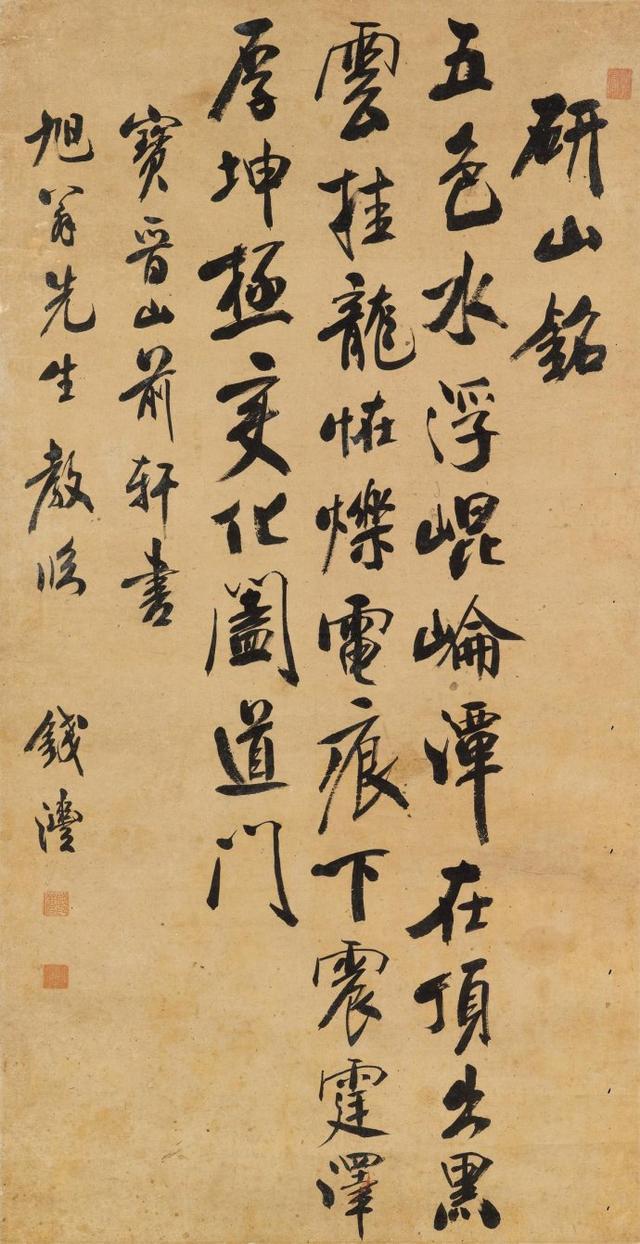 研山銘
五色水浮崐崘潭在頂出黑
雲挂龍恠爍電痕下震霆澤
厚坤極变化闔道門
寶晉山前軒書
旭翁先生教臨
錢灃